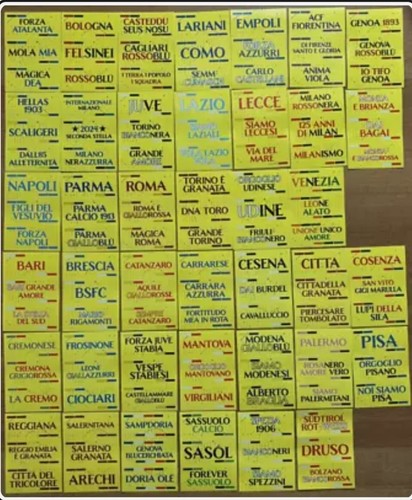 FORZA ATALANTA
MOLA MIA
MAGICA DEA
BOLOGNA
FELSINEI
ROSSOBLÙ
CASTEDDU SEUS NOSU
CAGLIARI ROSSOBLÙ
1 TERRA 1 POPOLO 1 SQUADRA
LARIANI
COMO
SEMM
EMPOLI
FORZA AZZURRI
CARLO CASTELLANI
ACF FIORENTINA
DI FIRENZE VANTO E GLORIA
ANIMA VIOLA
GENOA 1893
GENOVA ROSSOBLÙ
IO TIFO GENOA
HELLAS 1903
SCALIGERI
DALL'85 ALL'ETERNITÀ
INTERNAZIONALE MILANO
★2024★ SECONDA STELLA
MILANO NERAZZURRA
JUVE
TORINO BIANCONERA
GRANDE AMORE
LAZIO
SIAMO LAZIALI
LAZIO
LECCE
SIAMO LECCESI
VIA DEL MARE
MILANO ROSSONERA
125 ANNI DI MILAN
MILANISMO
MONZA E BRIANZA
BAGAI
MONZA
NAPOLI
FIGLI DEL VESUVIO
FORZA NAPOLI
PARMA
PARMA CALCIO 1913
PARMA GIALLOBLÙ
ROMA
ROMA È GIALLOROSSA
MAGICA ROMA
TORINO È GRANATA
DNA TORO
GRANDE TORINO
ORGOGLIO UDINESE
UDINE
FRIULI BIANCONERO
VENEZIA
LEONE ALATO
UNIONE UNICO AMORE
BARI
BARI GRANDE AMORE
LA STELLA DEL SUD
BRESCIA
BSFC
MARIO RIGAMONTI
CATANZARO
AQUILE GIALLOROSSE
SEMPRE CATANZARO
CARRARESE
CARRARA AZZURRA
FORTITUDO MEA IN ROTA
CESENA
DAI BURDEL
CAVALLUCCIO
CITTA
CITTADELLA GRANATA
PIERCESARE TOMBOLATO
COSENZA
SAN VITO GIGI MARULLA
LUPI DELLA SILA
CREMONESE
CREMONA GRIGIOROSSA
LA CREMO
FROSINONE
LEONI GIALLAZZURRI
CIOCIARI
FORZA JUVE STABIA
VESPE STABIESI
CASTELLAMMARE GIALLOBLÙ
MANTOVA
ORGOGLIO MANTOVANO
VIRGILIANI
MODENA GIALLOBLÙ
SIAMO MODENESI
ALBERTO BRAGLIA
PALERMO
ROSANERO AMORE VERO
SIAMO PALERMITANI
PISA
ORGOGLIO PISANO
NOI SIAMO PISA
REGGIANA
REGGIO EMILIA È GRANATA
CITTÀ DEL TRICOLORE
SALERNITANA
SALERNO GRANATA
ARECHI
SAMPDORIA
GENOVA BLUCERCHIATA
DORIA OLE
SASSUOLO CALCIO
SASÓL
FOREVER SASSUOLO
SPEZIA 1906
BIANCONERI
SIAMO SPEZZINI
SÜDTIROL ROT
DRUSO
BOLZANO BIANCOROSSA